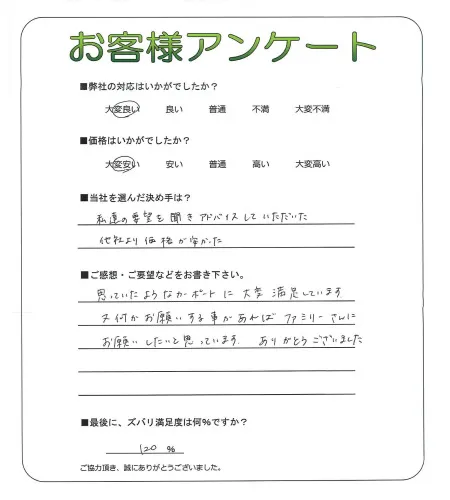 お客様アンケート
■弊社の対応はいかがでしたか？
大変良い 良い 普通 不満 大変不満
■価格はいかがでしたか？
大変安い 安い 普通 高い 大変高い
■当社を選んだ決め手は？
私達の要望を聞きアドバイスしていただいた
他社より価格が安かった
■ご感想・ご要望などをお書き下さい。
思っていたようなカーポートに大変満足しています
又何かお願いする事があれば ファミリーさんに
お願いしたいと思っています。 ありがとうございました
■最後に、ズバリ満足度は何%ですか？
120 %
ご協力頂き、誠にありがとうございました。